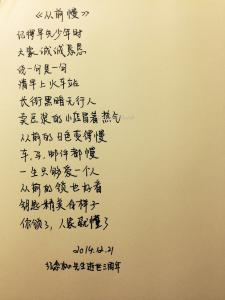 《从前慢》
记得早先少年时
大家诚诚恳恳
说一句是一句
清早上火车站
长街黑暗无行人
卖豆浆的小店冒着热气
从前的日色变得慢
车,马,邮件都慢
一生只够爱一个人
从前的锁也好看
钥匙精美有样子
你锁了,人家就懂了
2014.12.21
先生逝世三周年